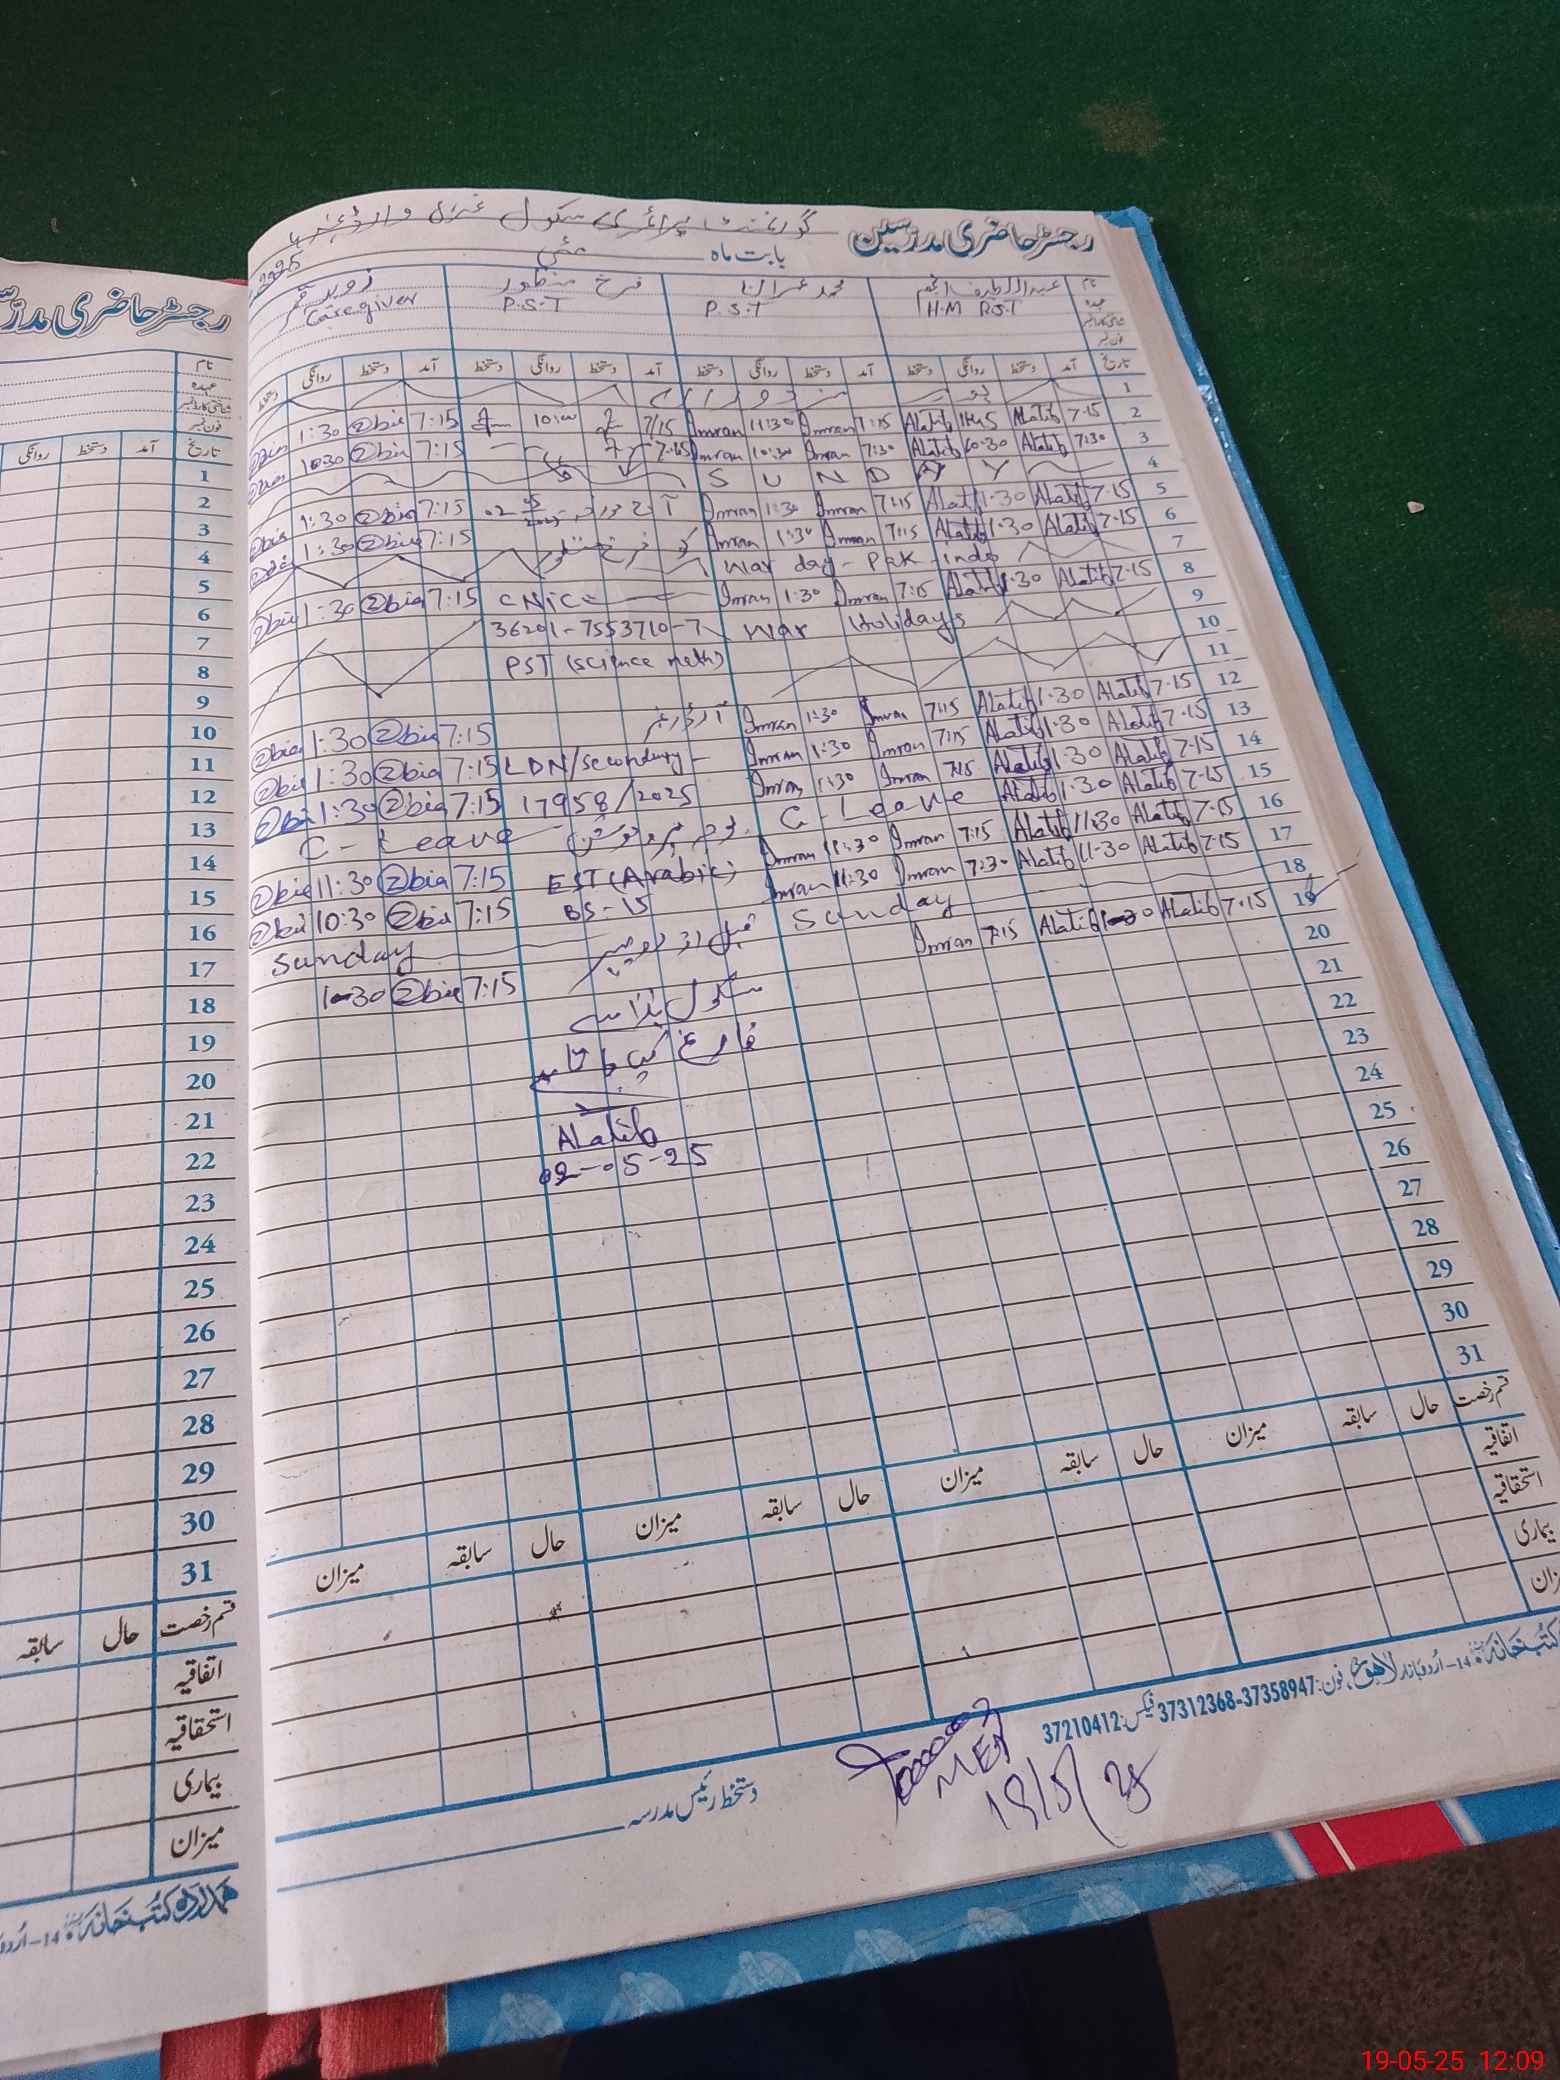 رجسٹر حاضری مدرسین گورنمنٹ پرائمری سکول
بابت ماہ مئی 2025
نام عبداللطیف انجم محمد عمران فرخ منظور
عہدہ H.M PST P.S.T P.S.T Caregiver
تاریخ آمد دستخط روانگی دستخط آمد دستخط روانگی دستخط آمد دستخط روانگی دستخط آمد دستخط روانگی دستخط
1
2 7.15 ALatib ALatib 7:15 Imran 11:30 Imran 7/15 10:00 7:15 Zbia 1:30 Zbia
3 7:30 ALatib 10:30 ALatib 7:30 Imran 10:30 Imran 7:15 Zbia 10:30 Zbia
4 S U N D A Y
5 7.15 ALatib 1.30 ALatib 7:15 Imran 1:30 Imran 7:15 Zbia 1:30 Zbia
6 7.15 ALatib 1.30 ALatib 7:15 Imran 1:30 Imran کو فرخ منظور 7:15 Zbia 1:30 Zbia
7 War day - Pak - India
8 7.15 ALatib 1.30 ALatib 7:15 Imran 1:30 Imran CNIC 7:15 Zbia 1:30 Zbia
9 War Holidays 36201-7553710-7
10 PST (science math)
11
12 7.15 ALatib 1.30 ALatib 7:15 Imran 1:30 Imran آرڈر نمبر 7:15 Zbia 1:30 Zbia
13 7.15 ALatib 1.30 ALatib 7:15 Imran 1:30 Imran LDN/secondary- 7:15 Zbia 1:30 Zbia
14 7.15 ALatib 1.30 ALatib 7:15 Imran 1:30 Imran 17958/2025 7:15 Zbia 1:30 Zbia
15 7.15 ALatib 1.30 ALatib C-Leave بوجہ پروموشن C-Leave
16 7.15 ALatib 11:30 ALatib 7:15 Imran 11:30 Imran EST (Arabic) 7:15 Zbia 11:30 Zbia
17 7.15 ALatib 11:30 ALatib 7:30 Imran 11:30 Imran BS-15 7:15 Zbia 10:30 Zbia
18 Sunday قبل از دوپہر Sunday
19 7.15 ALatib 1:30 ALatib 7:15 Imran سکول ہذا سے 7:15 Zbia 1:30
20 فارغ کیا جاتا ہے
21
22 ALatib
23 02-05-25
24
25
26
27
28
29
30
31
قسم رخصت حال سابقہ میزان حال سابقہ میزان حال سابقہ میزان حال سابقہ میزان
اتفاقیہ
استحقاقیہ
بیماری
میزان
کتب خانہ 14-اردو بازار لاہور، فون: 37358947-37312368 فیکس: 37210412
دستخط رئیس مدرسہ
MEA
19/5/25
رجسٹر حاضری مدرّ
نام
عہدہ
شناختی کارڈ نمبر
فون نمبر
تاریخ آمد دستخط روانگی
1
2
3
4
5
6
7
8
9
10
11
12
13
14
15
16
17
18
19
20
21
22
23
24
25
26
27
28
29
30
31
قسم رخصت حال سابقہ
اتفاقیہ
استحقاقیہ
بیماری
میزان
ہمدرد کتب خانہ 14-اردو
19-05-25 12:09